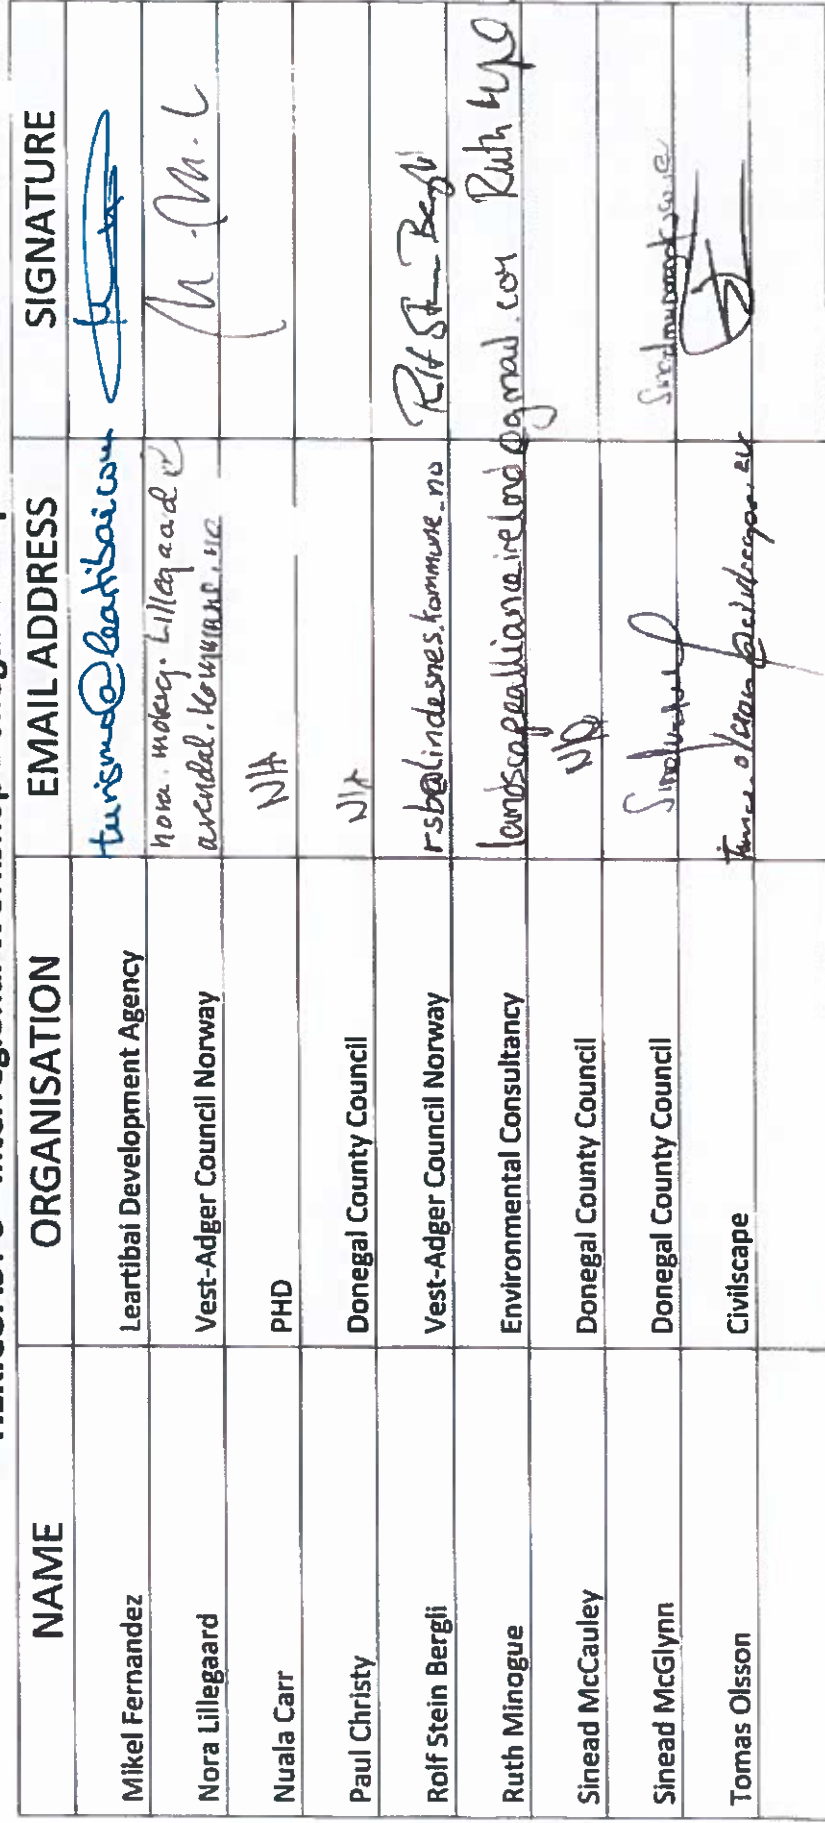 NAME ORGANISATION EMAIL ADDRESS SIGNATURE
Mikel Fernandez Leartibai Development Agency turismo@leartibai.com
Nora Lillegaard Vest-Adger Council Norway nora.moberg.Lillegaard@
arendal.kommune.no M.M.L
Nuala Carr PHD N/A
Paul Christy Donegal County Council N/A
Rolf Stein Bergli Vest-Adger Council Norway rsb@lindesnes.kommune.no Rolf Stein Bergli
Ruth Minogue Environmental Consultancy landscapeallianceireland@gmail.com Ruth
Sinead McCauley Donegal County Council N/A
Sinead McGlynn Donegal County Council
Tomas Olsson Civilscape